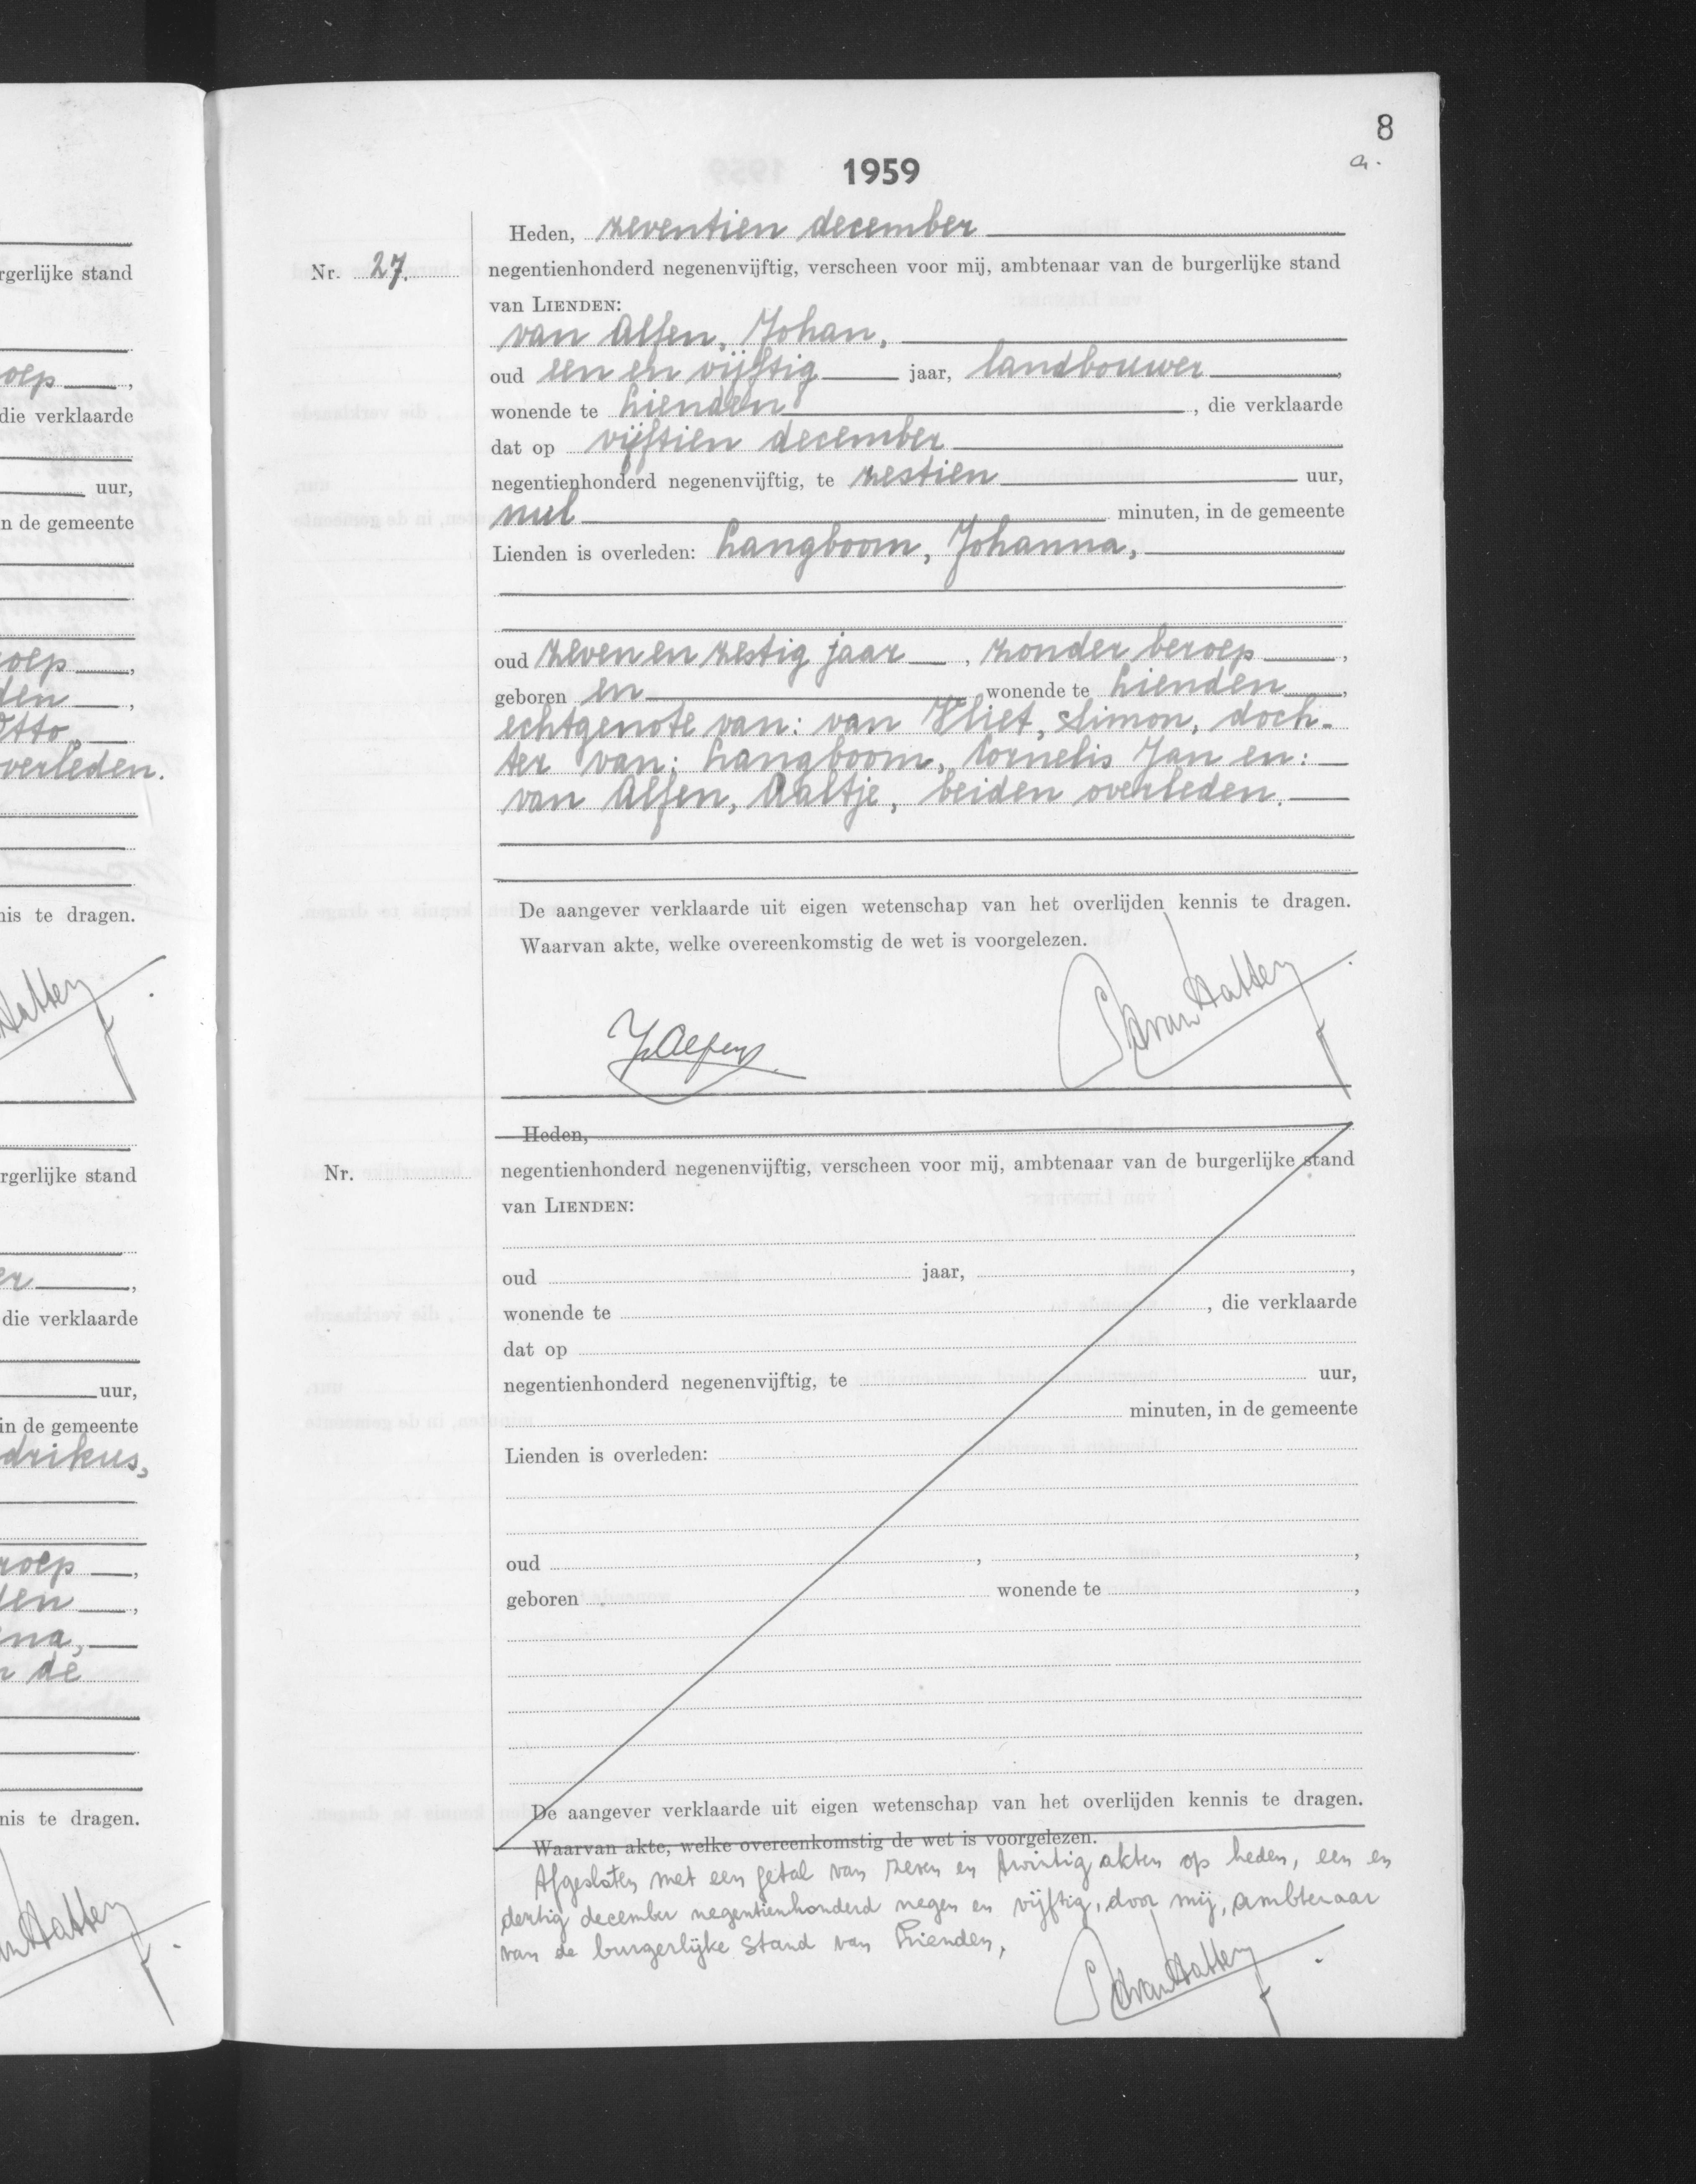 rgerlijke stand
oep
die verklaarde
uur,
n de gemeente
oep
den
Otto
verleden.
nis te dragen.
Hatten
rgerlijke stand
er
die verklaarde
uur,
in de gemeente
drikus,
roep
den
na,
de
nis te dragen.
an Hatten
8
a.
1959
Nr. 27.
Heden, zeventien december
negentienhonderd negenenvijftig, verscheen voor mij, ambtenaar van de burgerlijke stand
van LIENDEN:
van Alfen, Johan,
oud een en vijftig jaar, landbouwer,
wonende te Lienden, die verklaarde
dat op vijftien december
negentienhonderd negenenvijftig, te zestien uur,
nul minuten, in de gemeente
Lienden is overleden: Langboom, Johanna,
oud zeven en zestig jaar, zonder beroep,
geboren en wonende te Lienden,
echtgenote van: van Vliet, Simon, doch-
ter van: Langboom, Cornelis Jan en:
van Alfen, Aaltje, beiden overleden.
De aangever verklaarde uit eigen wetenschap van het overlijden kennis te dragen.
Waarvan akte, welke overeenkomstig de wet is voorgelezen.
van Hatten
Heden,
Nr.
negentienhonderd negenenvijftig, verscheen voor mij, ambtenaar van de burgerlijke stand
van LIENDEN:
oud jaar, ,
wonende te , die verklaarde
dat op
negentienhonderd negenenvijftig, te uur,
minuten, in de gemeente
Lienden is overleden:
oud , ,
geboren wonende te ,
De aangever verklaarde uit eigen wetenschap van het overlijden kennis te dragen.
Waarvan akte, welke overeenkomstig de wet is voorgelezen.
Afgesloten met een getal van zeven en twintig akten op heden, een en
dertig december negentienhonderd negen en vijftig, door mij, ambtenaar
van de burgerlijke stand van Lienden,
van Hatten